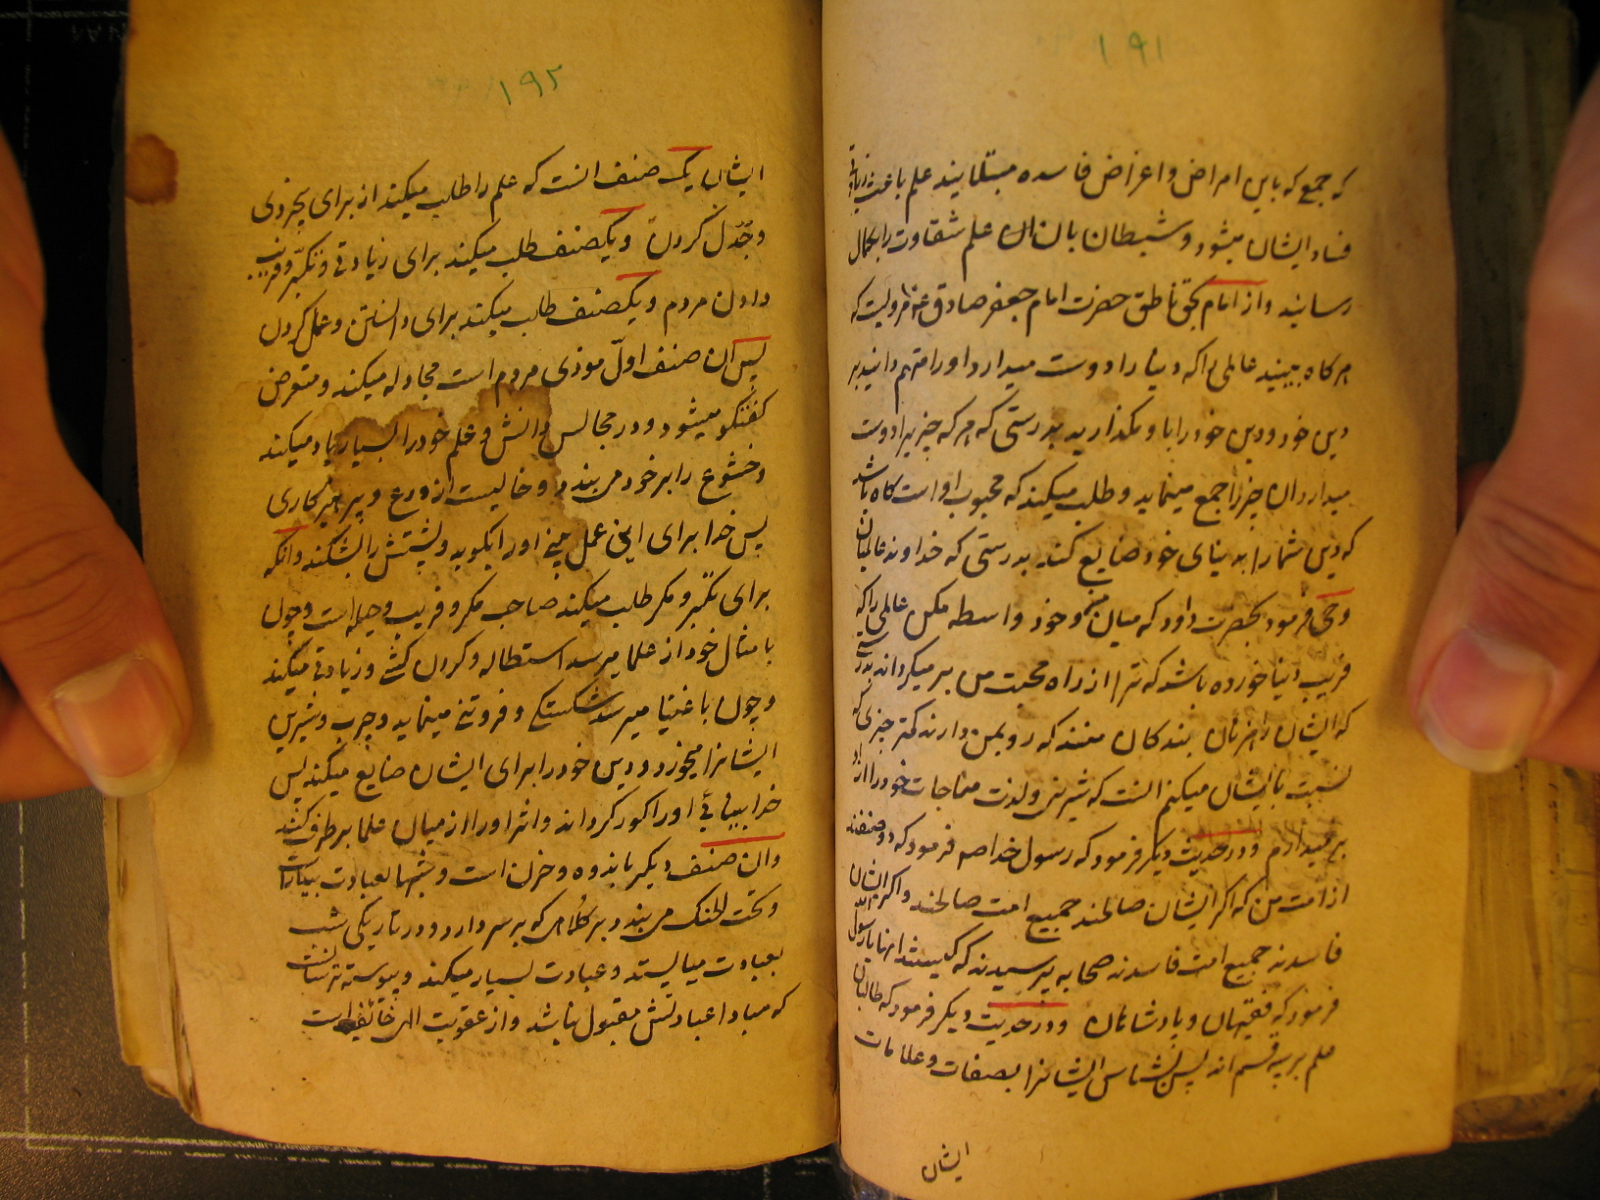 ۱۹۱
که جمع که باین امراض و اغراض فاسده مبتلایند علم باعث زیادتی
فساد ایشان میشود و شیطان بان اله علم شقاوت را بکمال
رسانید و از امام بحق ناطق حضرت امام جعفر صادق ع مرویست که
هر کاه ببینید عالمی را که دنیا را دوست میدارد او را متهم دانید بر
دین خود و دین خود را باو مکذارید بدرستی که هر که چیزیرا دوست
میدارد ان چیز را جمع مینماید و طلب میکند که محبوب او است کاه باشد
که دین شما را به بنای خود ضایع کند بدرستی که خداوند عالمیان
وحی فرمود بحضرت داود که میان من و خود واسطه مکن عالمی را که
فریب دنیا خورده باشد که ترا از راه محبت من بر میکرداند بدرستی
که ایشان راهزنان بندکان منند که رو بمن دارند کمتر چیزی که
نسبت بایشان میکنم انست که شیرینی و لذت مناجات خود را از ایشان
بر میدارم و در حدیث دیکر فرمود که رسول خدا صم فرمود که دو صنفند
از امت من که اکر ایشان صالحند جمیع امت صالحند و اکر ایشان
فاسدند جمیع امت فاسدند صحابه پرسیدند که کیستند انها یا رسول الله
فرمود که فقیهان و پادشاهان و در حدیث دیکر فرمود که طالبان
علم بر سه قسم اند پس بشناس ایشانرا بصفات و علامات
ایشان
۱۹۲
ایشان یک صنف انست که علم را طلب میکند از برای بیخردی
و جدل کردن و یکصنف طلب میکند برای زیادتی و تکبر و فریب
دادن مردم و یکصنف طلب میکند برای دانستن و عمل کردن
پس ان صنف اول موذی مردم است مجادله میکند و متعرض
کفتکو میشود و در مجالس دانش و علم خود را بسیار یاد میکند
و خشوع را بر خود می بندد و خالیست از ورع و پرهیزکاری
پس خدا برای این عمل بینی او را بکوبد و پشتش را بشکند و انکه
برای تکبر و مکر طلب میکند صاحب مکر و فریب و حیله است و چون
بامثال خود از علما میرسد استطاله و کردن کشی و زیادتی میکند
و چون باغنیا میرسد شکستکی و فروتنی مینماید و چرب و شیرین
ایشانرا میخورد و دین خود را برای ایشان ضایع میکند پس
خدا بینائی او را کور کرداند و اثر او را از میان علما برطرف کند
و ان صنف دیکر با اندوه و حزن است و شبها بعبادت بیدار است
و تحت الحنک می بندد بر کلاهی که بر سر دارد و در تاریکی شب
بعبادت میایستد و عبادت بسیار میکند و پیوسته ترسانست
که مبادا عبادتش مقبول نباشد و از عقوبت الهی خائف است